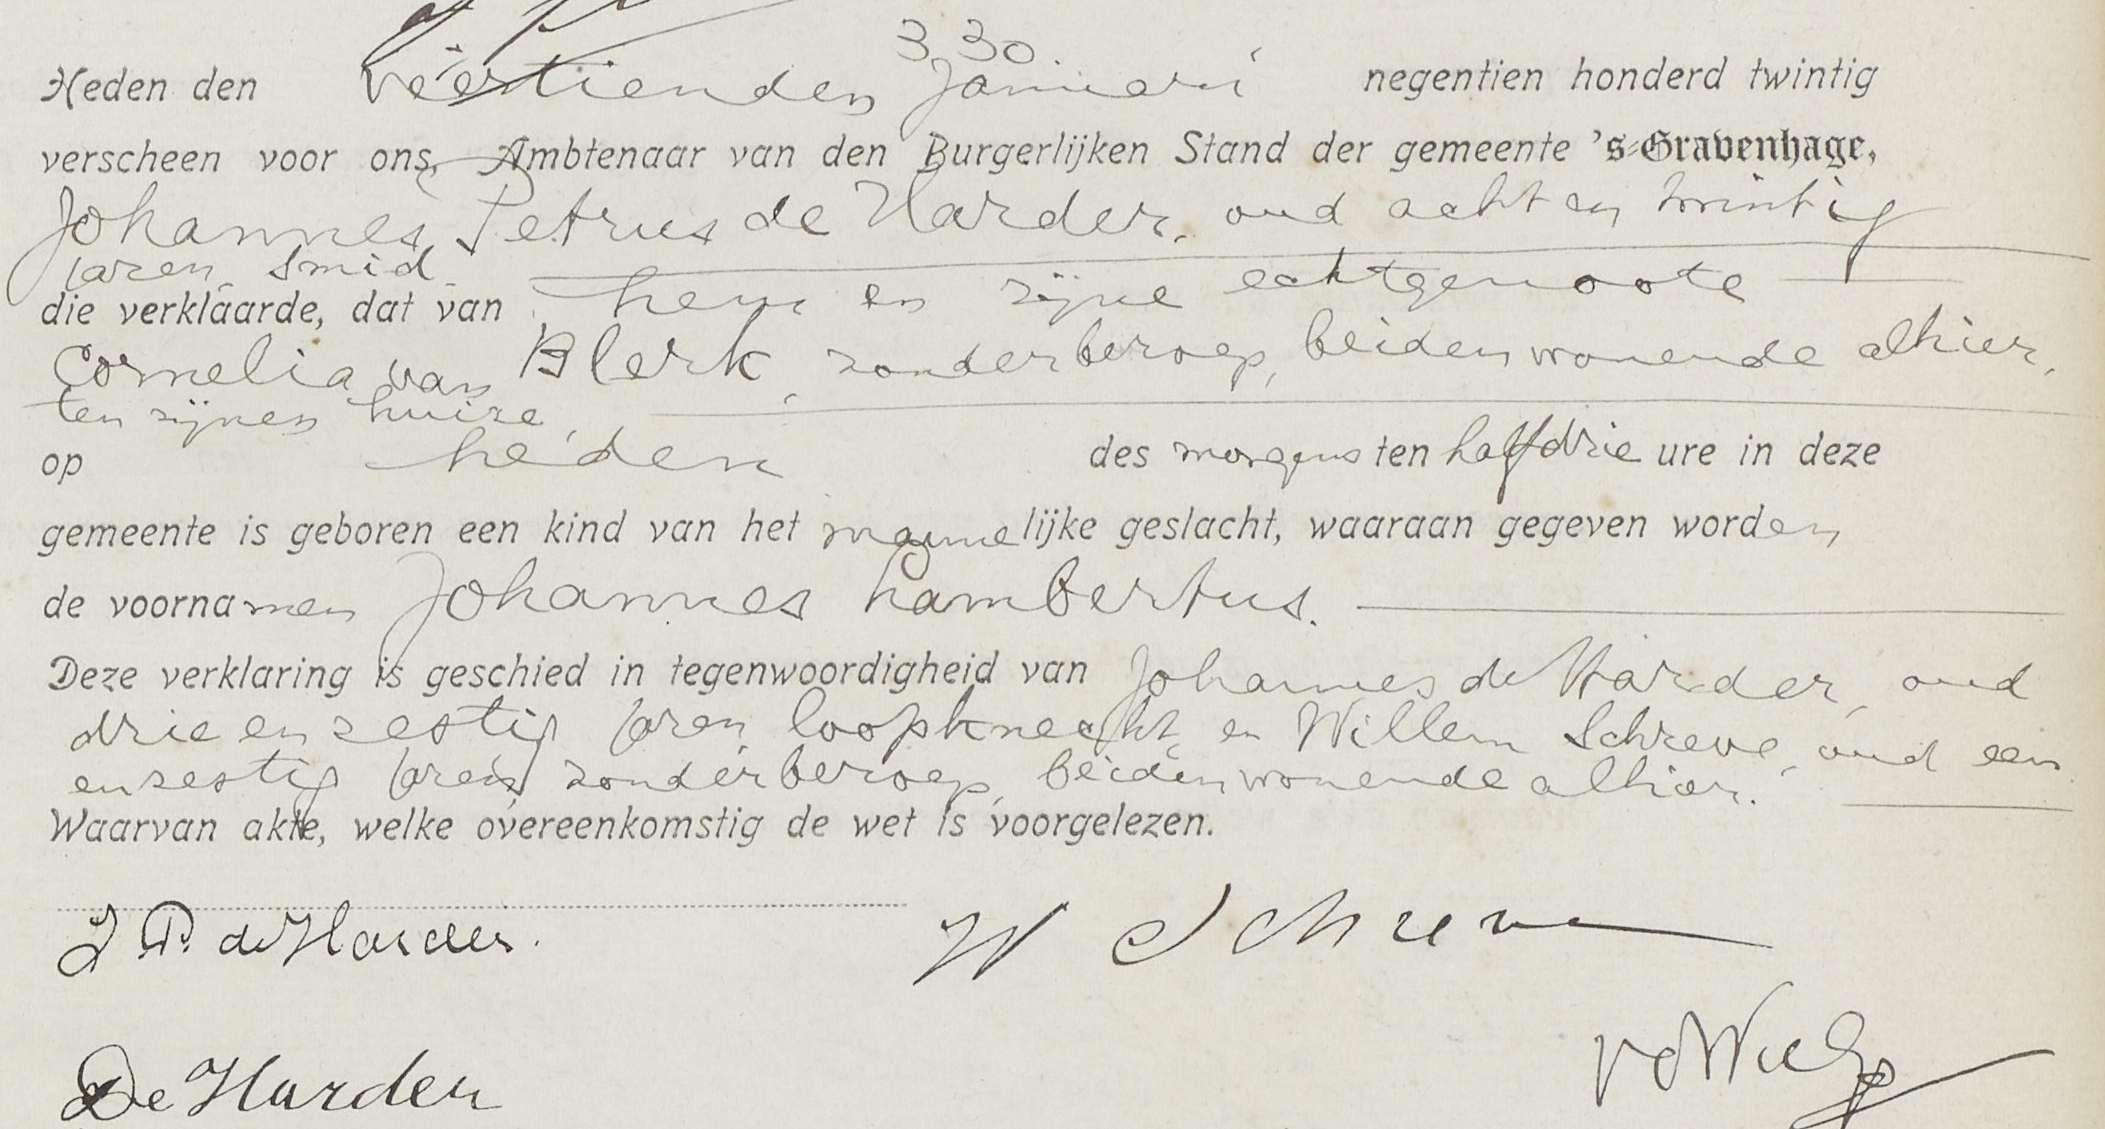 3.30
Heden den veertienden Januari negentien honderd twintig
verscheen voor ons, Ambtenaar van den Burgerlijken Stand der gemeente 's-Gravenhage,
Johannes Petrus de Harder, oud acht en twintig
jaren, smid
die verklaarde, dat van hem en zijne echtgenoote
Cornelia van Blerk, zonder beroep, beiden wonende alhier,
ten zijnen huize,
op heden des morgens ten half drie ure in deze
gemeente is geboren een kind van het mannelijke geslacht, waaraan gegeven worden
de voornamen Johannes Lambertus.
Deze verklaring is geschied in tegenwoordigheid van Johannes de Harder, oud
drie en zestig jaren, loopknecht, en Willem Schreve, oud een
en zestig jaren, zonder beroep, beiden wonende alhier.
Waarvan akte, welke overeenkomstig de wet is voorgelezen.
J P. de Harder. W Schreve
De Harder